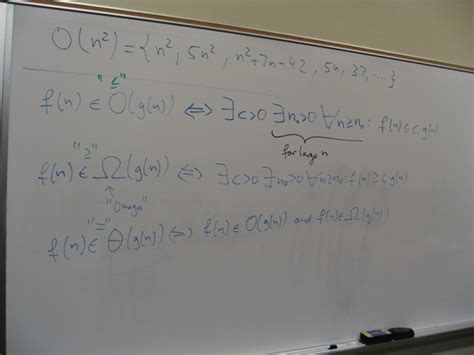 O(n²) = {n², 5n², n²+7n-42, 5n, 37, ...}
"≤"
f(n) ∈ O(g(n)) ⟺ ∃c>0 ∃n₀>0 ∀n≥n₀: f(n) ≤ c g(n)
for large n
"≥"
f(n) ∈ Ω(g(n)) ⟺ ∃c>0 ∃n₀>0 ∀n≥n₀: f(n) ≥ c g(n)
↑
"Omega"
"="
f(n) ∈ Θ(g(n)) ⟺ f(n) ∈ O(g(n)) and f(n) ∈ Ω(g(n))